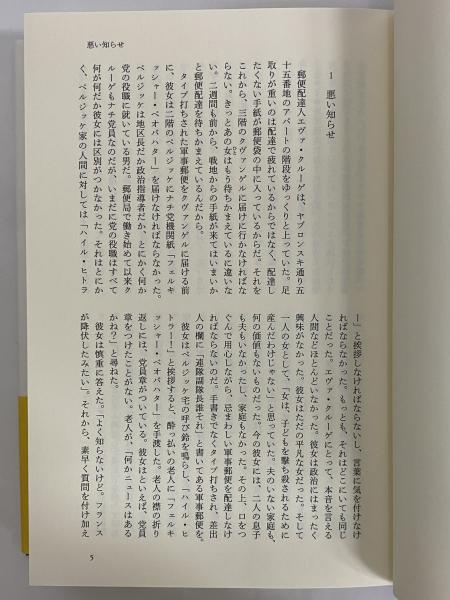 悪い知らせ
1 悪い知らせ
郵便配達人エヴァ・クルーゲは、ヤブロンスキ通り五
十五番地のアパートの階段をゆっくりと上っていた。足
取りが重いのは配達で疲れているからではなく、配達し
たくない手紙が郵便袋の中に入っているからだ。それを
これから、三階のクヴァンゲルに届けに行かなければな
らない。きっとあの女はもう待ちかまえているに違いな
い。二週間も前から、戦地からの手紙が来てはいまいか
と郵便配達を待ちかまえているんだから。
タイプ打ちされた軍事郵便をクヴァンゲルに届ける前
に、彼女は二階のペルジッケにナチ党機関紙「フェルキ
ッシャー・ベオバハター」を届けなければならなかった。
ペルジッケは地区長だか政治指導者だか、とにかく何か
党の役職に就いている男だ。郵便局で働き始めて以来ク
ルーゲもナチ党員なのだが、いまだに党の役職はすべて
何が何だか彼女には区別がつかなかった。それはとにか
く、ペルジッケ家の人間に対しては「ハイル・ヒトラ
ー」と挨拶しなければならないし、言葉に気を付けなけ
ればならなかった。もっとも、それはどこにいても同じ
ことだった。エヴァ・クルーゲにとって、本音を言える
人間などほとんどいなかった。彼女は政治にはまったく
興味がなかった。彼女はただの平凡な女だった。そして
一人の女として、「女は、子どもを撃ち殺されるために
産んだわけじゃない」と思っていた。夫のいない家庭も、
何の価値もないものだった。今の彼女には、二人の息子
も夫もいなかったし、家庭もなかった。その上、口をつ
ぐんで用心しながら、忌まわしい軍事郵便を配達しなけ
ればならないのだ。手書きでなくタイプ打ちされ、差出
人の欄に「連隊副隊長誰それ」と書いてある軍事郵便を。
彼女はペルジッケ宅の呼び鈴を鳴らし、「ハイル・ヒ
トラー!」と挨拶すると、酔っ払いの老人に「フェルキ
ッシャー・ベオバハター」を手渡した。老人の襟の折り
返しには、党員章がついている。彼女はといえば、党員
章をつけたことがない。老人が、「何かニュースはある
かね?」と尋ねた。
彼女は慎重に答えた。「よく知らないけど。フランス
が降伏したみたい」。それから、素早く質問を付け加え
5